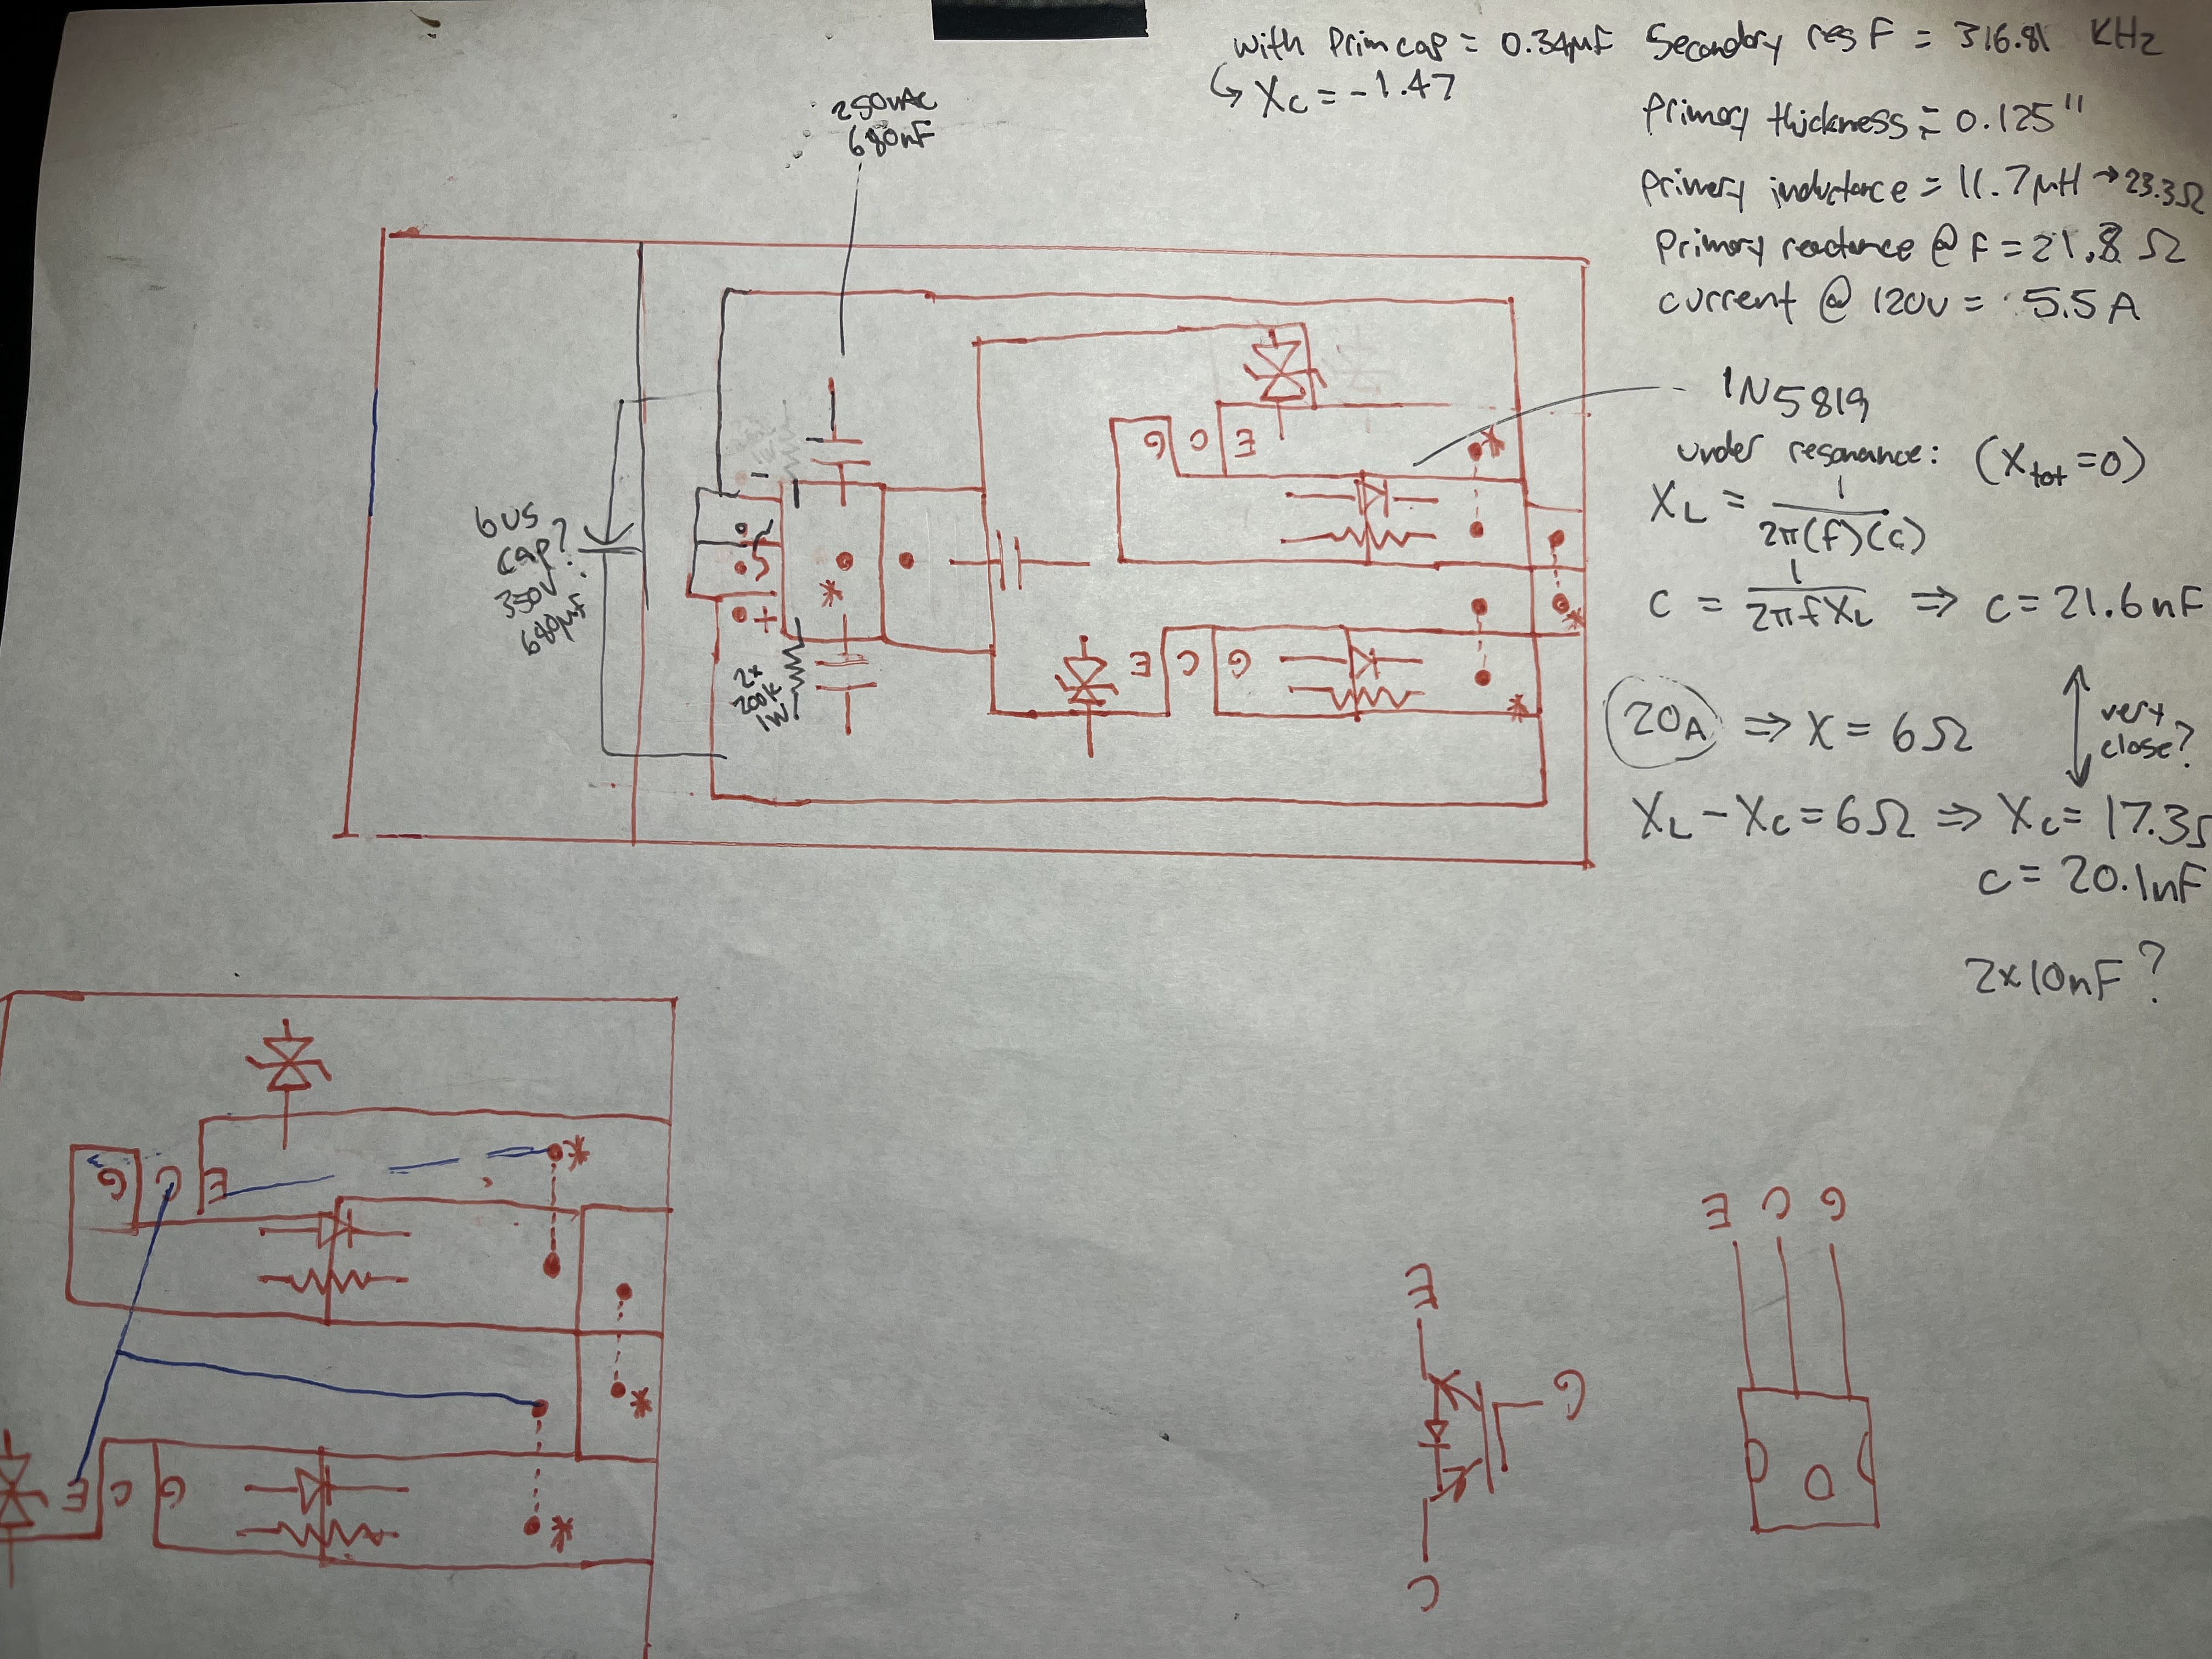 with Prim cap = 0.34μF
↳ Xc = -1.47
Secondary res F = 316.81 KHz
Primary thickness = 0.125"
Primary inductance = 11.7μH → 23.3Ω
Primary reactance @ F = 21.8 Ω
current @ 120v = 5.5 A
250vAc
680nF
1N5819
under resonance: (Xtot = 0)
XL = 1 / 2π(f)(c)
C = 1 / 2πfXL ⇒ C = 21.6nF
20A ⇒ X = 6Ω
very
close?
XL - Xc = 6Ω ⇒ Xc = 17.3Ω
C = 20.1nF
2x10nF?
bus
cap?
350v
680μF
-
+
*
2x
200k
1W
G C E
*
*
E C G
*
G C E
*
*
E C G
*
E
G
C
E C G